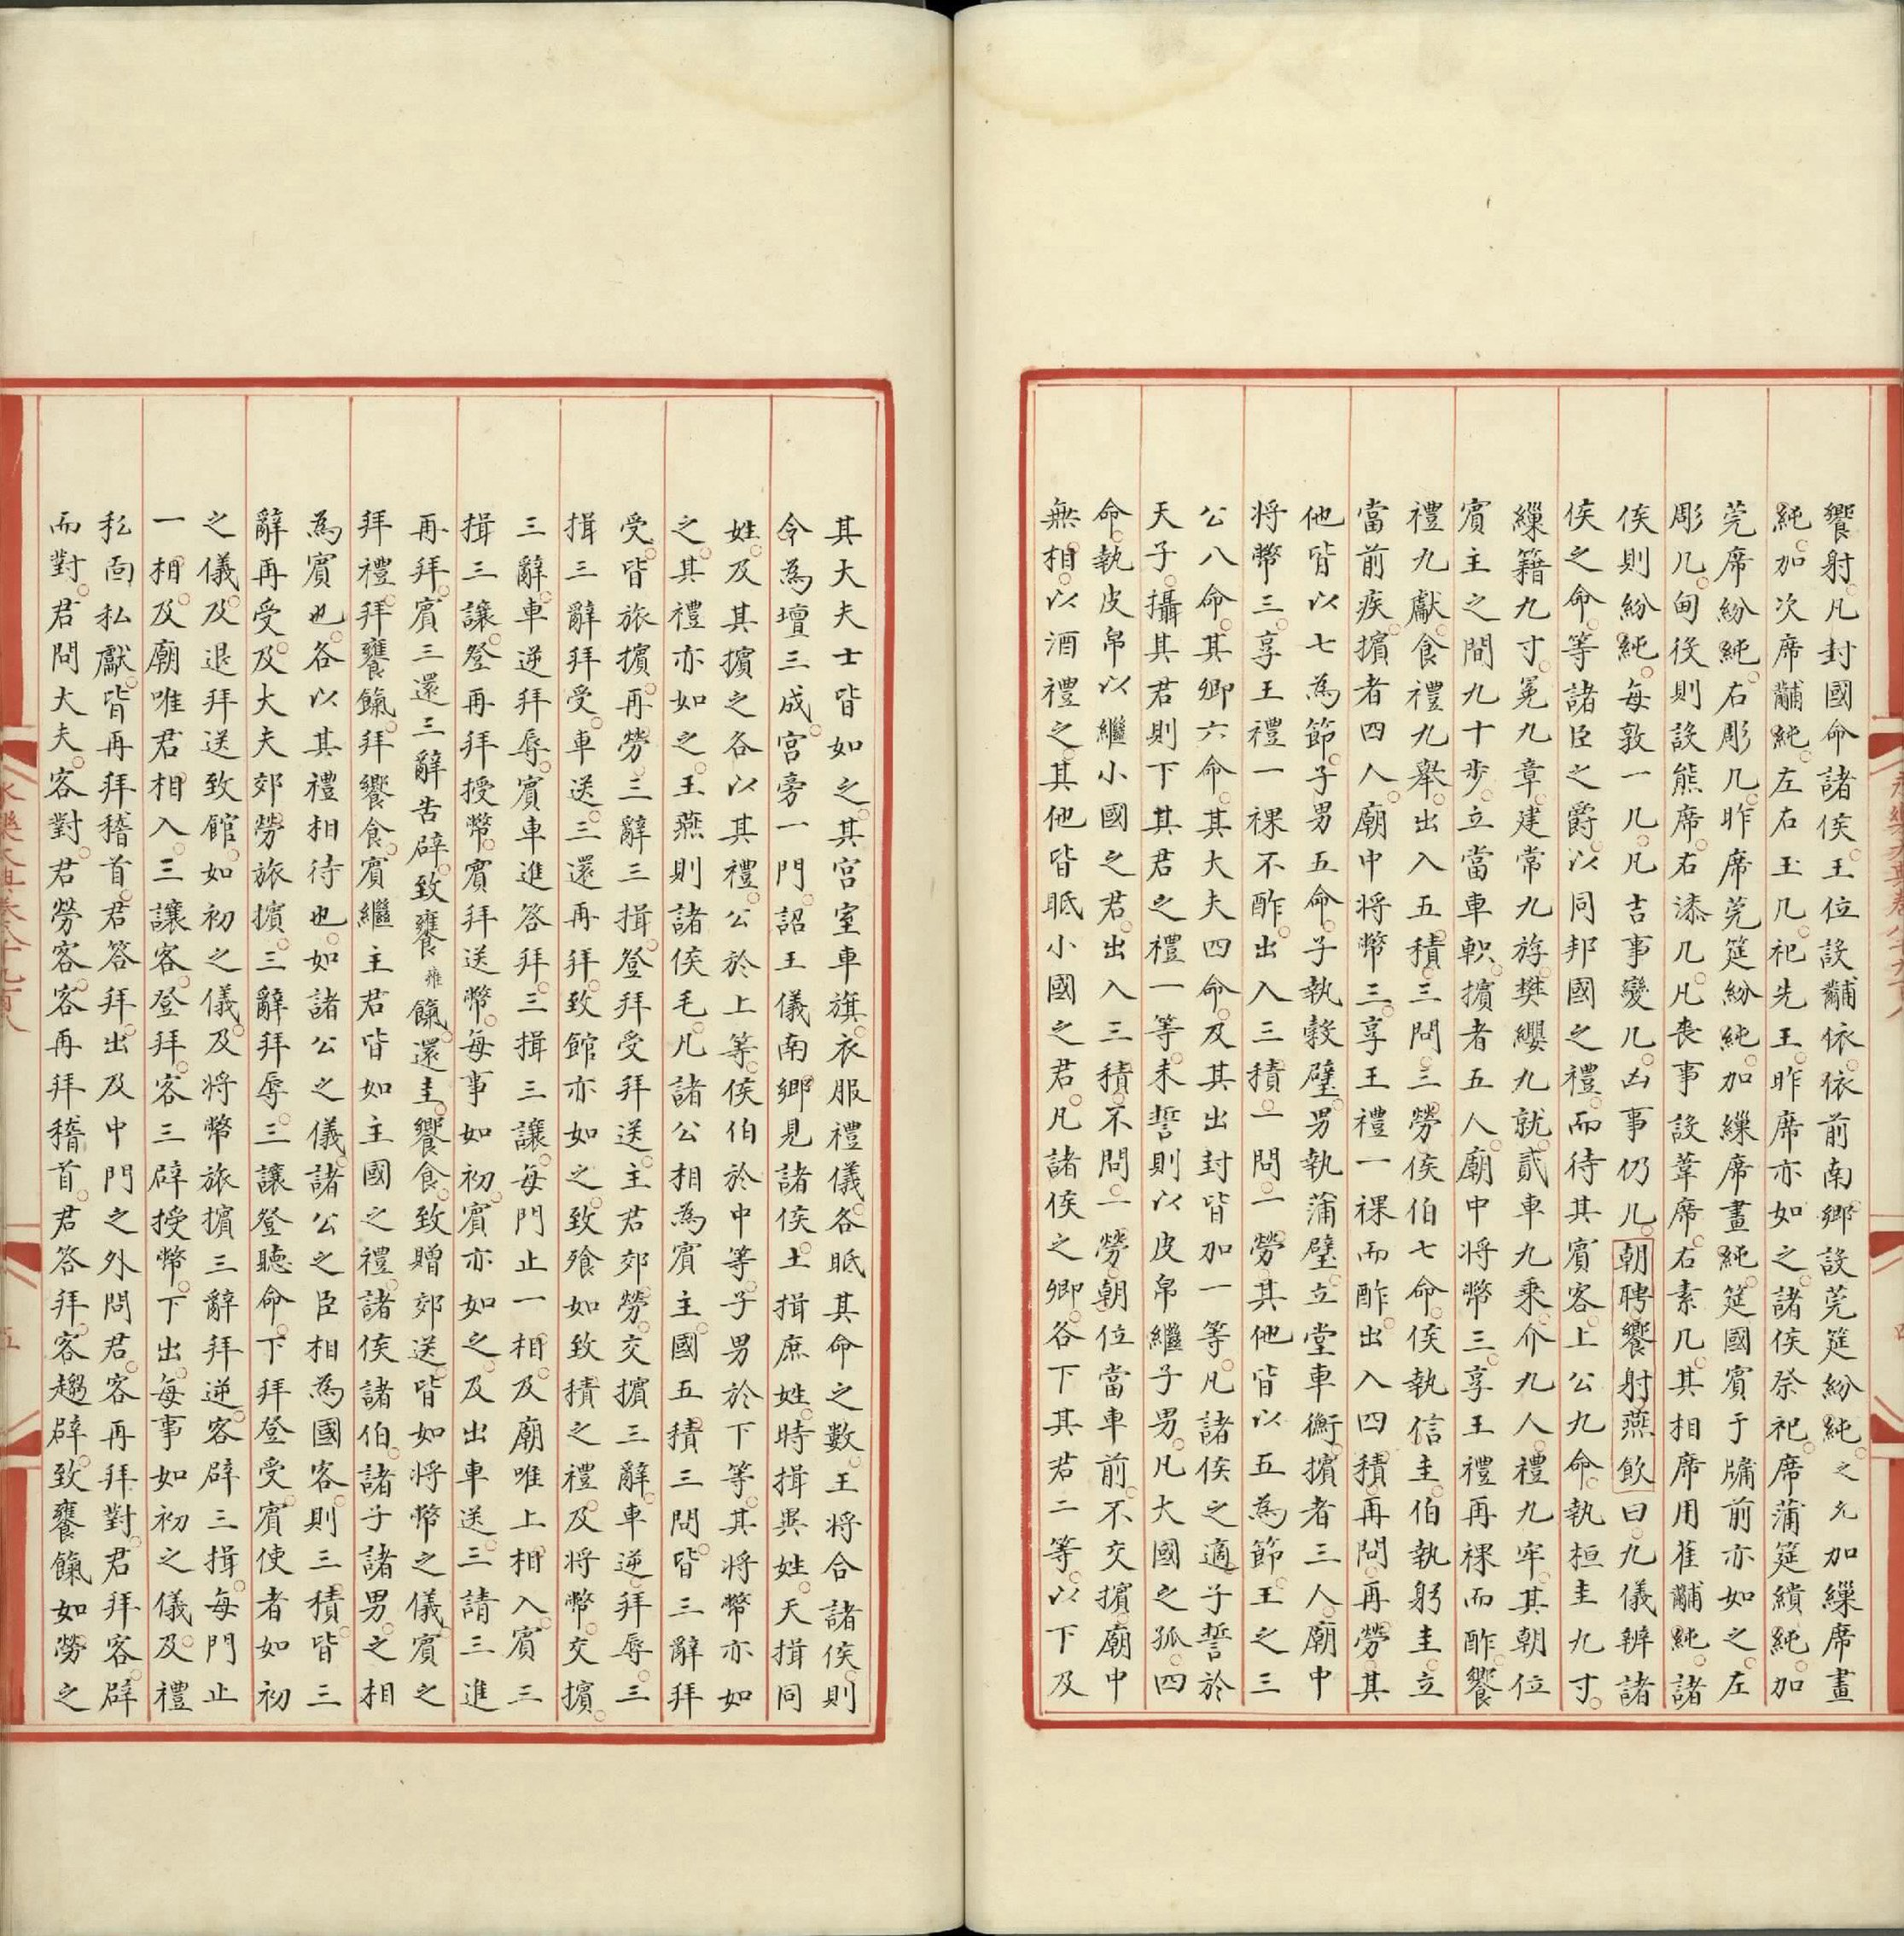 饗射凡封國命諸侯王位設黼依依前南鄉設莞筵紛純之允加繅席畫
純加次席黼純左右玉几祀先王昨席亦如之諸侯祭祀席蒲筵繢純加
莞席紛純右彫几昨席莞筵紛純加繅席畫純筵國賓于牖前亦如之左
彫几甸役則設熊席右漆几凡喪事設葦席右素几其相席用萑黼純諸
侯則紛純每敦一几凡吉事變几凶事仍几朝聘饗射燕飲曰九儀辨諸
侯之命等諸臣之爵以同邦國之禮而待其賓客上公九命執桓圭九寸
繅籍九寸冕九章建常九斿樊纓九就貳車九乘介九人禮九牢其朝位
賓主之間九十步立當車軹擯者五人廟中將幣三享王禮再祼而酢饗
禮九獻食禮九舉出入五積三問三勞侯伯七命侯執信圭伯執躬圭立
當前疾擯者四人廟中將幣三享王禮一祼而酢出入四積再問再勞其
他皆以七為節子男五命子執穀璧男執蒲璧立堂車衡擯者三人廟中
將幣三享王禮一祼不酢出入三積一問一勞其他皆以五為節王之三
公八命其卿六命其大夫四命及其出封皆加一等凡諸侯之適子誓於
天子攝其君則下其君之禮一等未誓則以皮帛繼子男凡大國之孤四
命執皮帛以繼小國之君出入三積不問一勞朝位當車前不交擯廟中
無相以酒禮之其他皆眡小國之君凡諸侯之卿各下其君二等以下及
其大夫士皆如之其宮室車旗衣服禮儀各眡其命之數王將合諸侯則
令為壇三成宮旁一門詔王儀南鄉見諸侯土揖庶姓時揖異姓天揖同
姓及其擯之各以其禮公於上等侯伯於中等子男於下等其將幣亦如
之其禮亦如之王燕則諸侯毛凡諸公相為賓主國五積三問皆三辭拜
受皆旅擯再勞三辭三揖登拜受拜送主君郊勞交擯三辭車逆拜辱三
揖三辭拜受車送三還再拜致館亦如之致飧如致積之禮及將幣交擯
三辭車逆拜辱賓車進答拜三揖三讓每門止一相及廟唯上相入賓三
揖三讓登再拜授幣賓拜送幣每事如初賓亦如之及出車送三請三進
再拜賓三還三辭告辟致饔維餼還圭饗食致贈郊送皆如將幣之儀賓之
拜禮拜饔餼拜饗食賓繼主君皆如主國之禮諸侯諸伯諸子諸男之相
為賓也各以其禮相待也如諸公之儀諸公之臣相為國客則三積皆三
辭再受及大夫郊勞旅擯三辭拜辱三讓登聽命下拜登受賓使者如初
之儀及退拜送致館如初之儀及將幣旅擯三辭拜逆客辟三揖每門止
一相及廟唯君相入三讓客登拜客三辟授幣下出每事如初之儀及禮
私面私獻皆再拜稽首君答拜出及中門之外問君客再拜對君拜客辟
而對君問大夫客對君勞客客再拜稽首君答拜客趨辟致饔餼如勞之